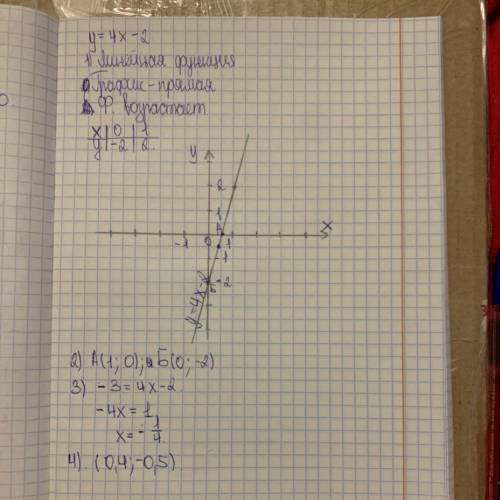 y=4x-2
1) Линейная функция
График-прямая
Ф. возрастает
x | 0 | 1
y | -2 | 2
y
2
1
A
x
-1 0 1
-1
Б -2
y=4x-2
2) A(1; 0); Б(0; -2)
3) -3=4x-2.
-4x=1,
x=-1/4.
4). (0,4; -0,5)